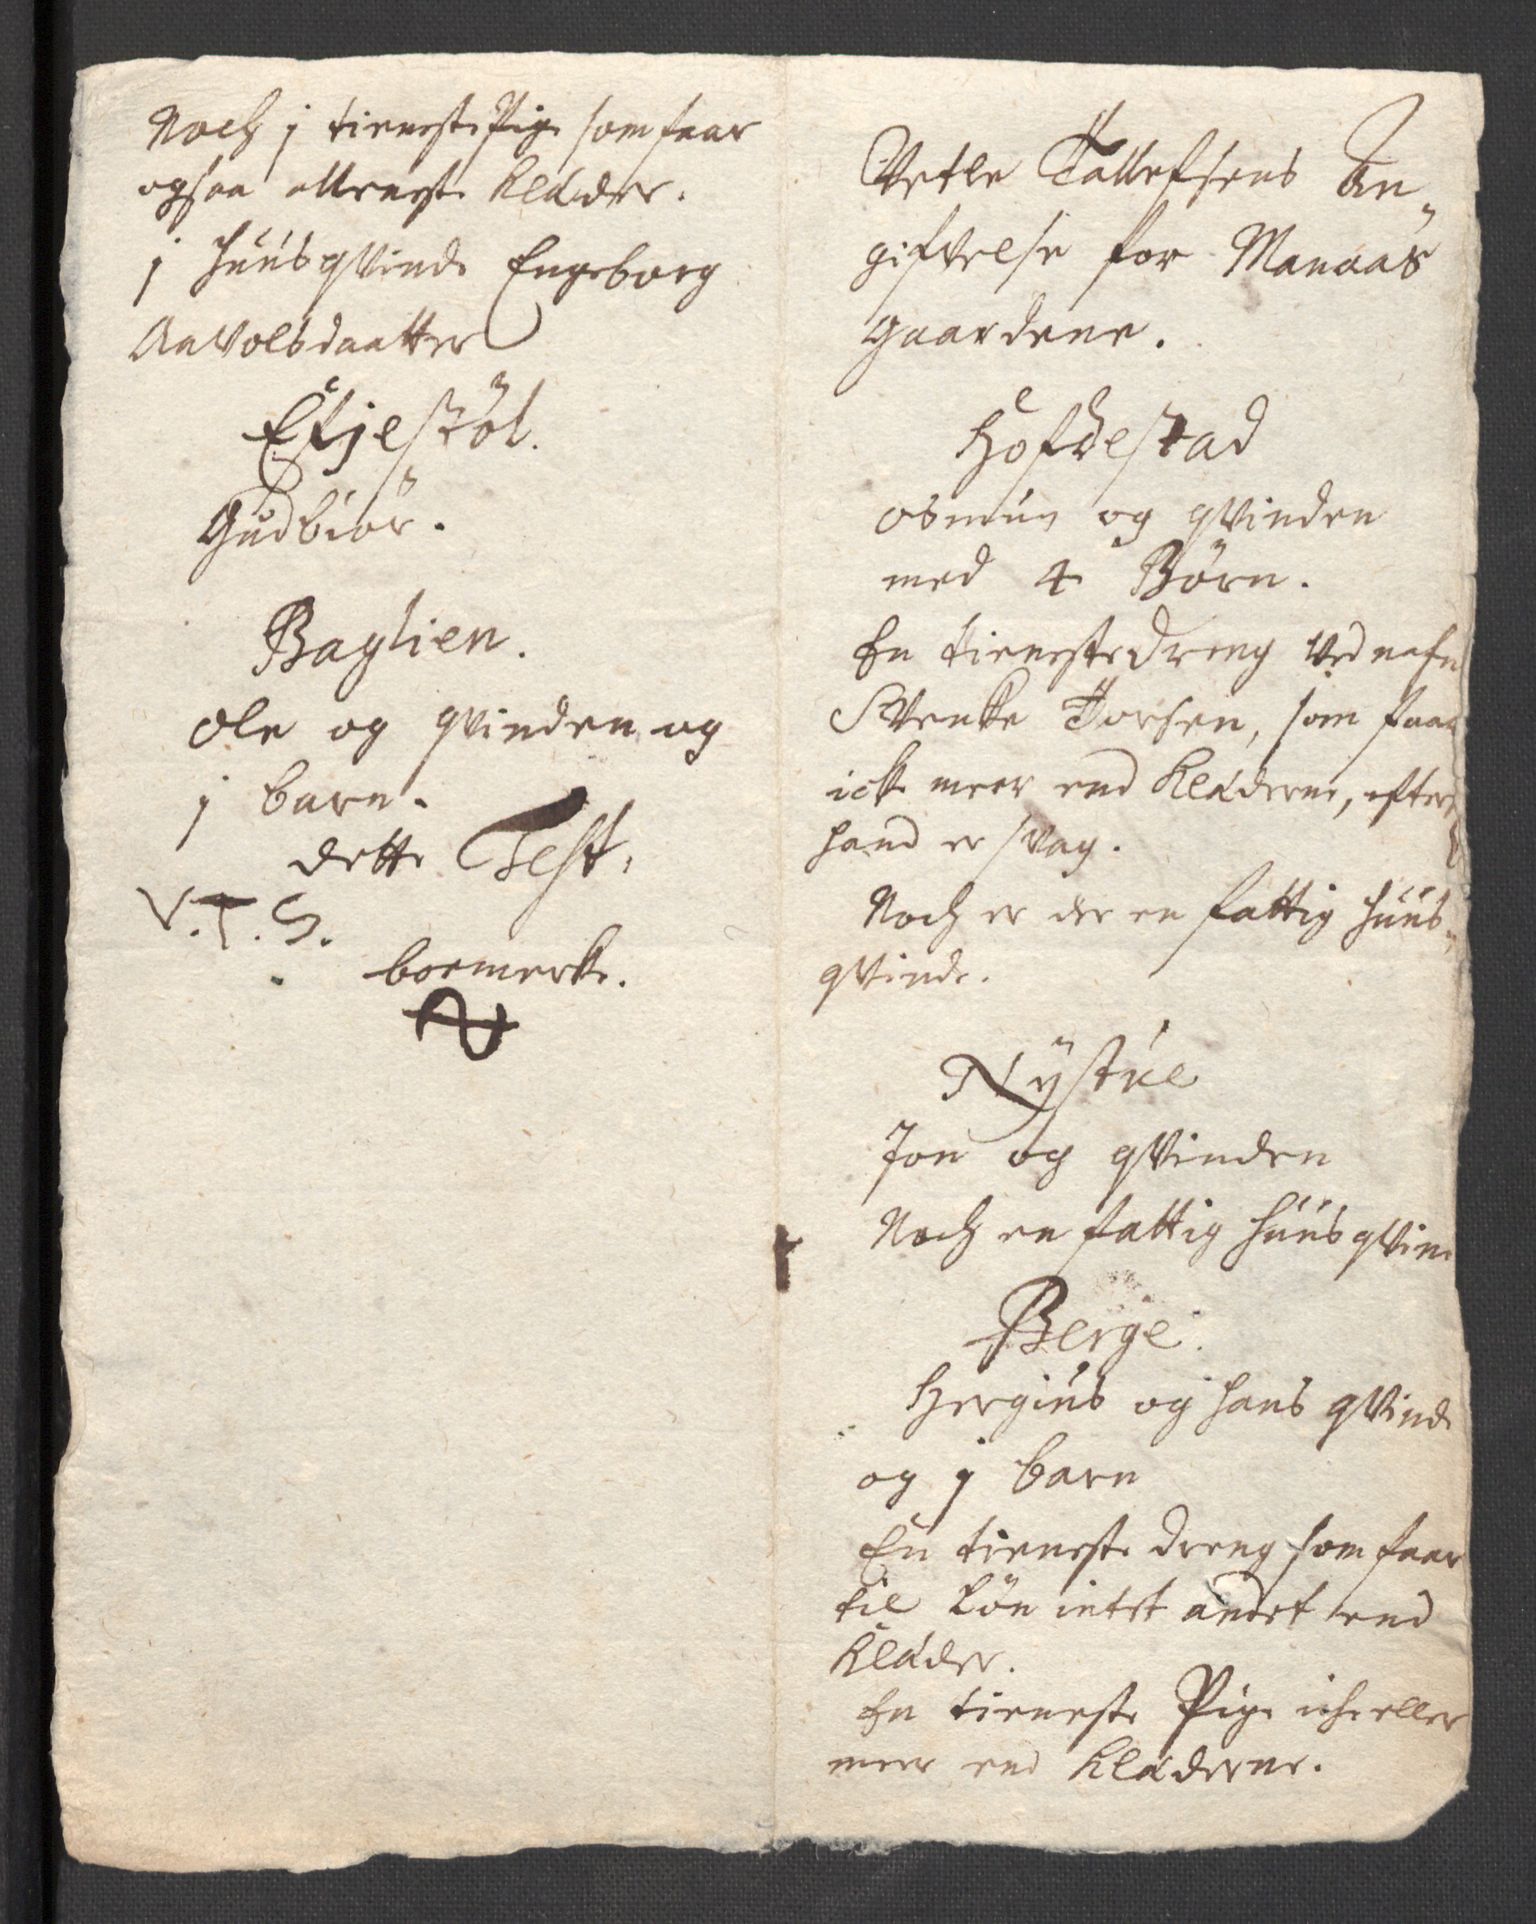 Noch j tieneste Pige som faar
ogsaa alleneste klæder.
j huusqvinde Engeborg
Aavolsdaatter
Efjestöl.
Gudbiör.
Baglien.
Ole og qvinden og
j barn.
dette Test.
V.T.S.
boemerke.
Vetle Tallefsens An„
gifvelse for Manaas
gaardene.
Hofdestad
osmun og qvinden
med 4 Börn.
En tienestedreng ved nafn
Svenke Torsen, som faar
icke meer end klæderne, efter
hand er svag.
Noch er der en fattig huus„
qvinde.
Nÿstúe
Jon og qvinden
Noch en fattig huusqvin
Berge.
Hergius og hans qvinde
og j barn
En tieneste dreng som faar
til Lön intet andet end
klæder.
En tieneste Pige iche eller
meer end klæderne.